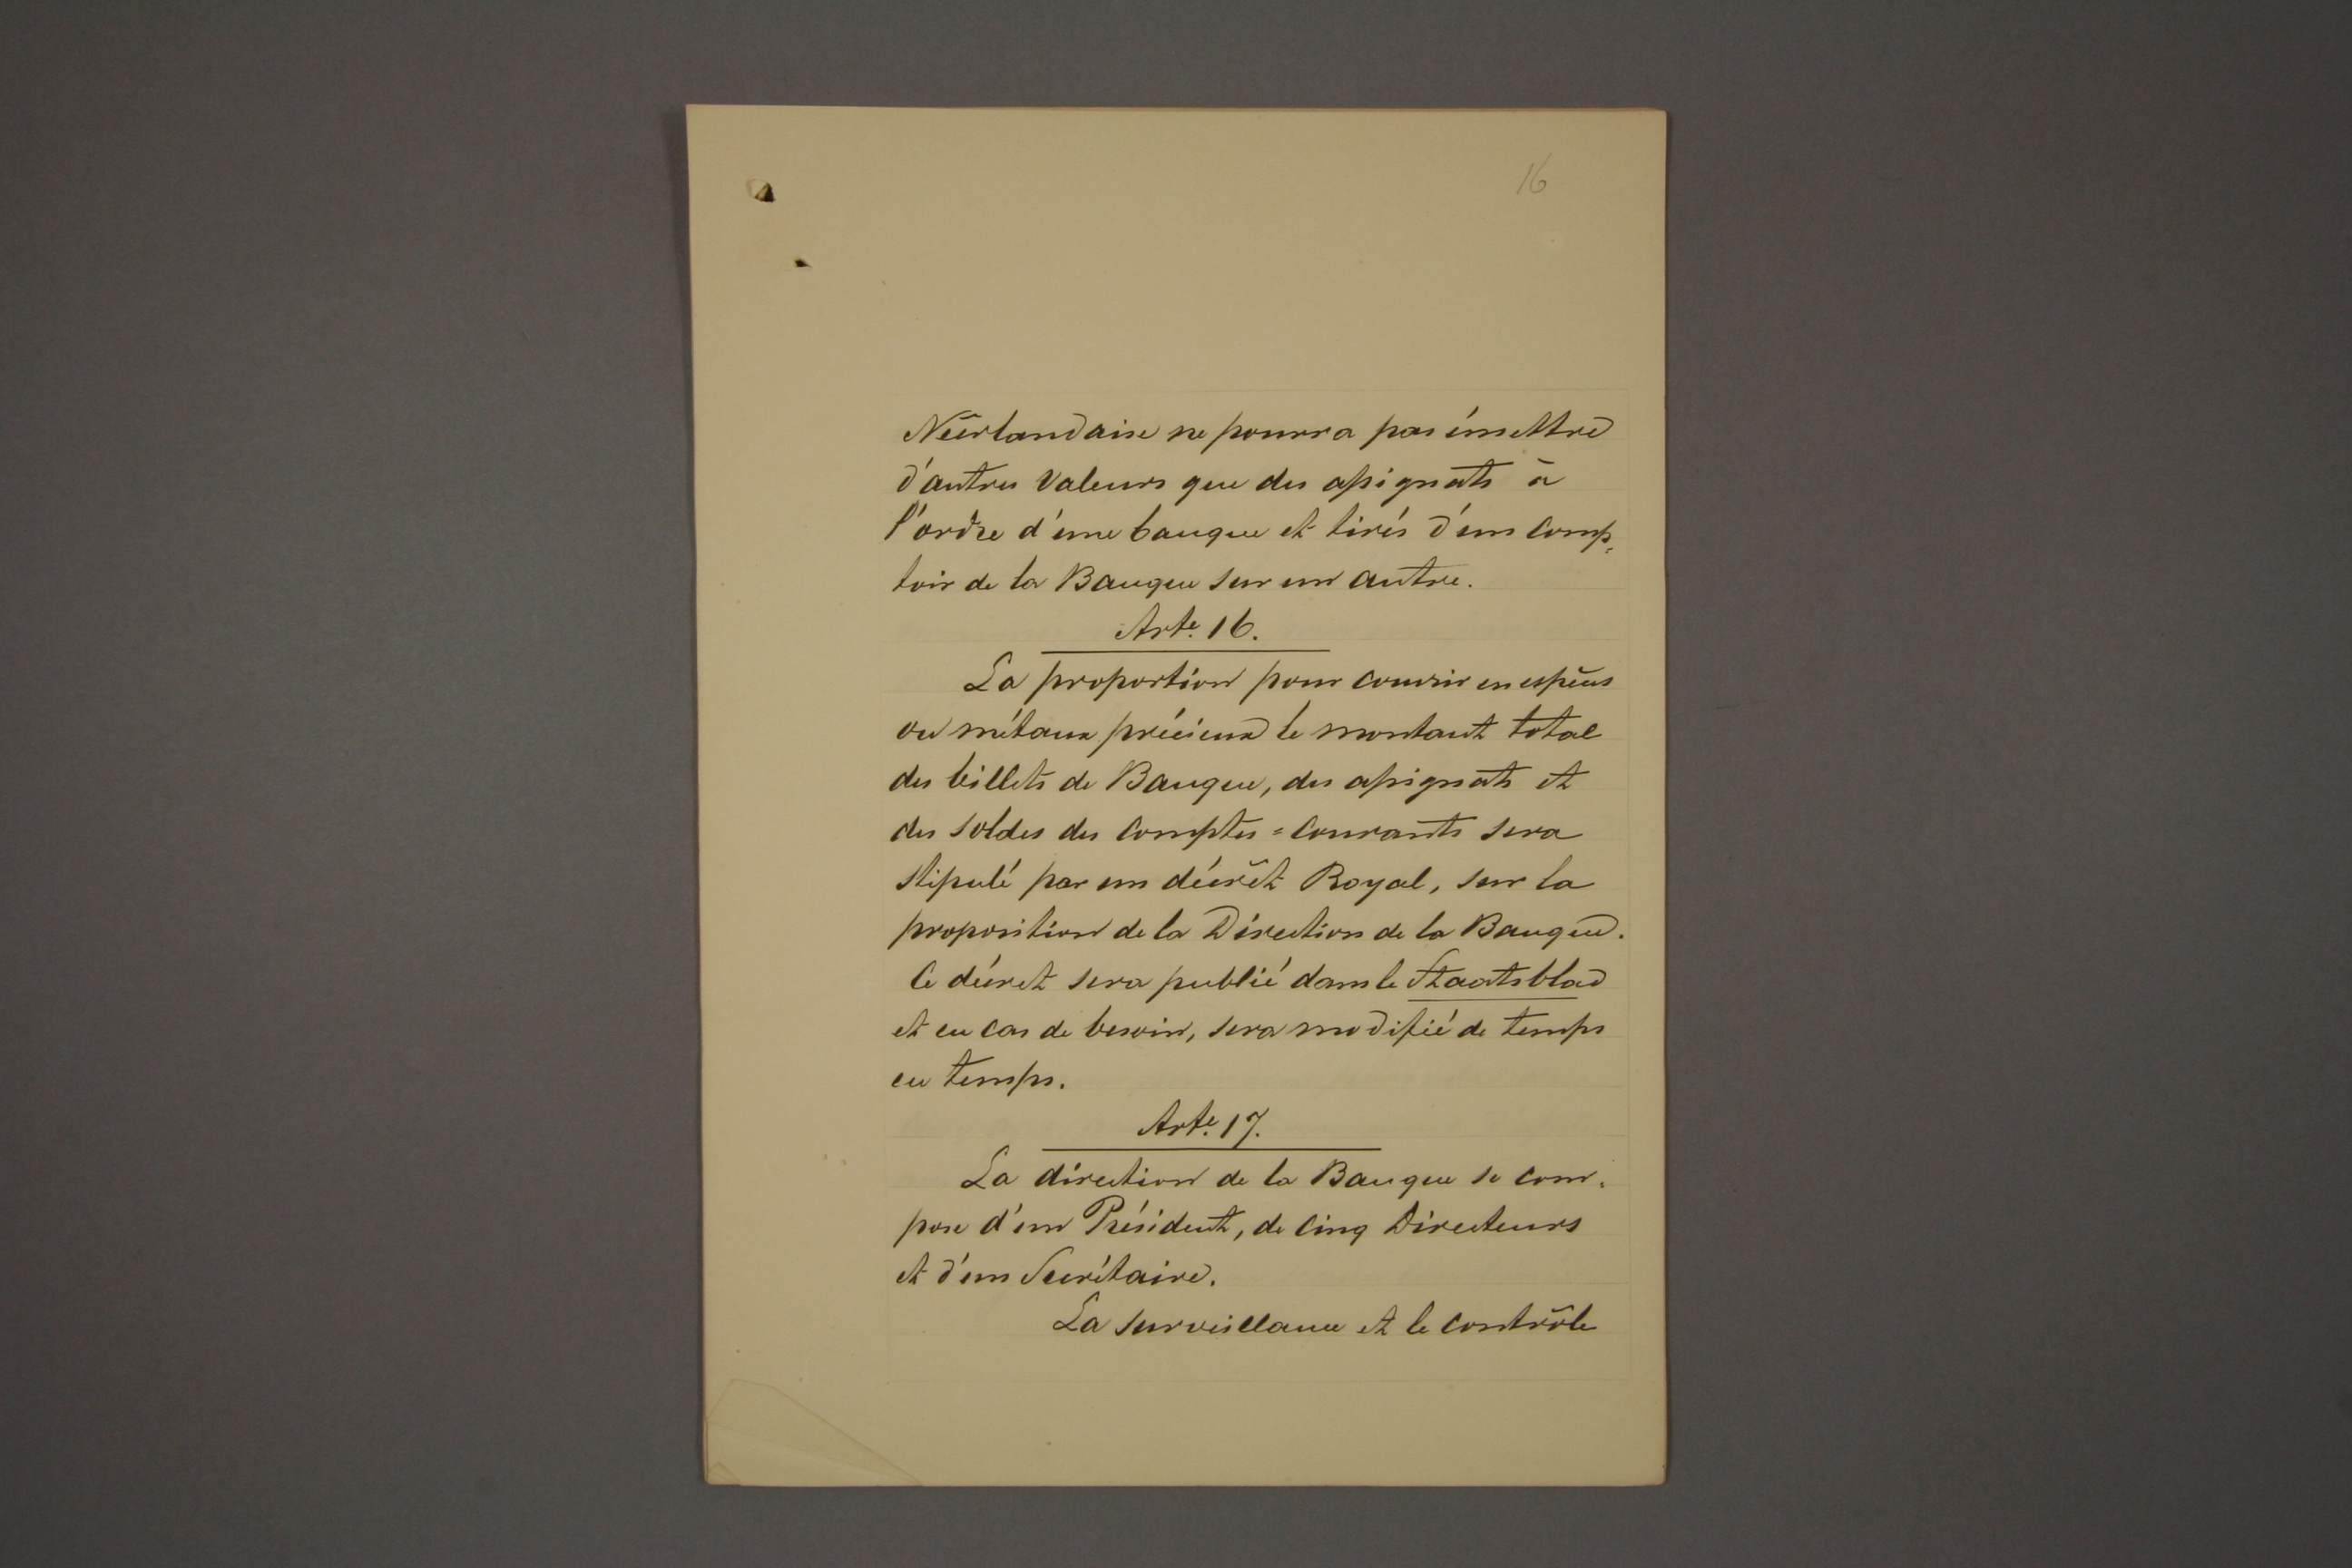 16
Néerlandaise ne pourra pas émettre
d'autres valeurs que des assignats à
l'ordre d'une banque et tirés d'un comp=
toir de la Banque sur un autre.
Arte. 16.
La proportion pour couvrir en espèces
ou métaux précieux le montant total
des billets de Banque, des assignats et
des soldes des comptes=courants sera
stipulé par un décrèt Royal, sur la
proposition de la Direction de la Banque.
Ce décret sera publié dans le Staatsblad
et en cas de besoin, sera modifié de temps
en temps.
Arte. 17.
La direction de la Banque se com=
pose d'un Président, de cinq Directeurs
et d'un Secrétaire.
La surveillance et le contrôle